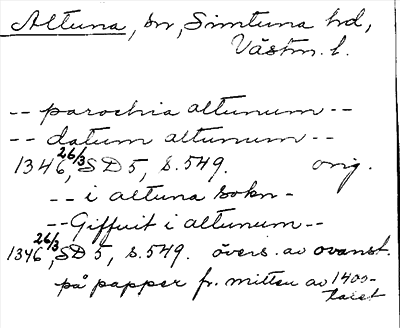 Altuna, sn, Simtuna hd,
Västm. l.
-- parochia altunum --
-- datum altunum --
1346 26/3, SD 5, s. 549. orig.
-- i altuna sokn -
-- Giffuit i altunum --
1346 26/3, SD 5, s. 549. övers. av ovanst.
på papper fr. mitten av 1400-
talet